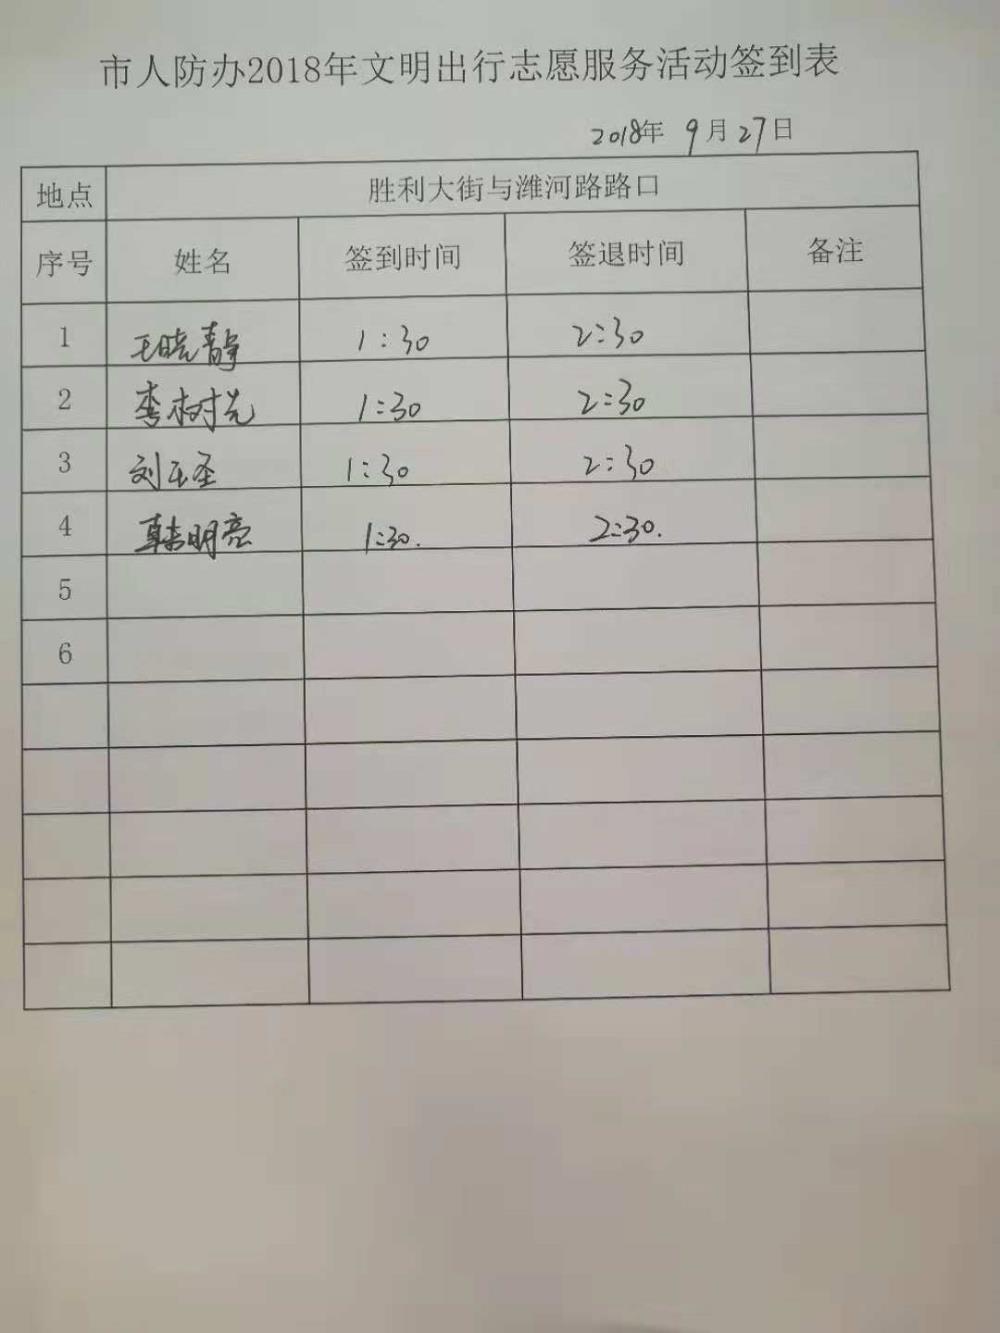 市人防办2018年文明出行志愿服务活动签到表
2018年 9月27日
地点 胜利大街与潍河路路口
序号 姓名 签到时间 签退时间 备注
1 王晓静 1:30 2:30
2 李树光 1:30 2:30
3 刘玉圣 1:30 2:30
4 韩明亮 1:30. 2:30.
5
6